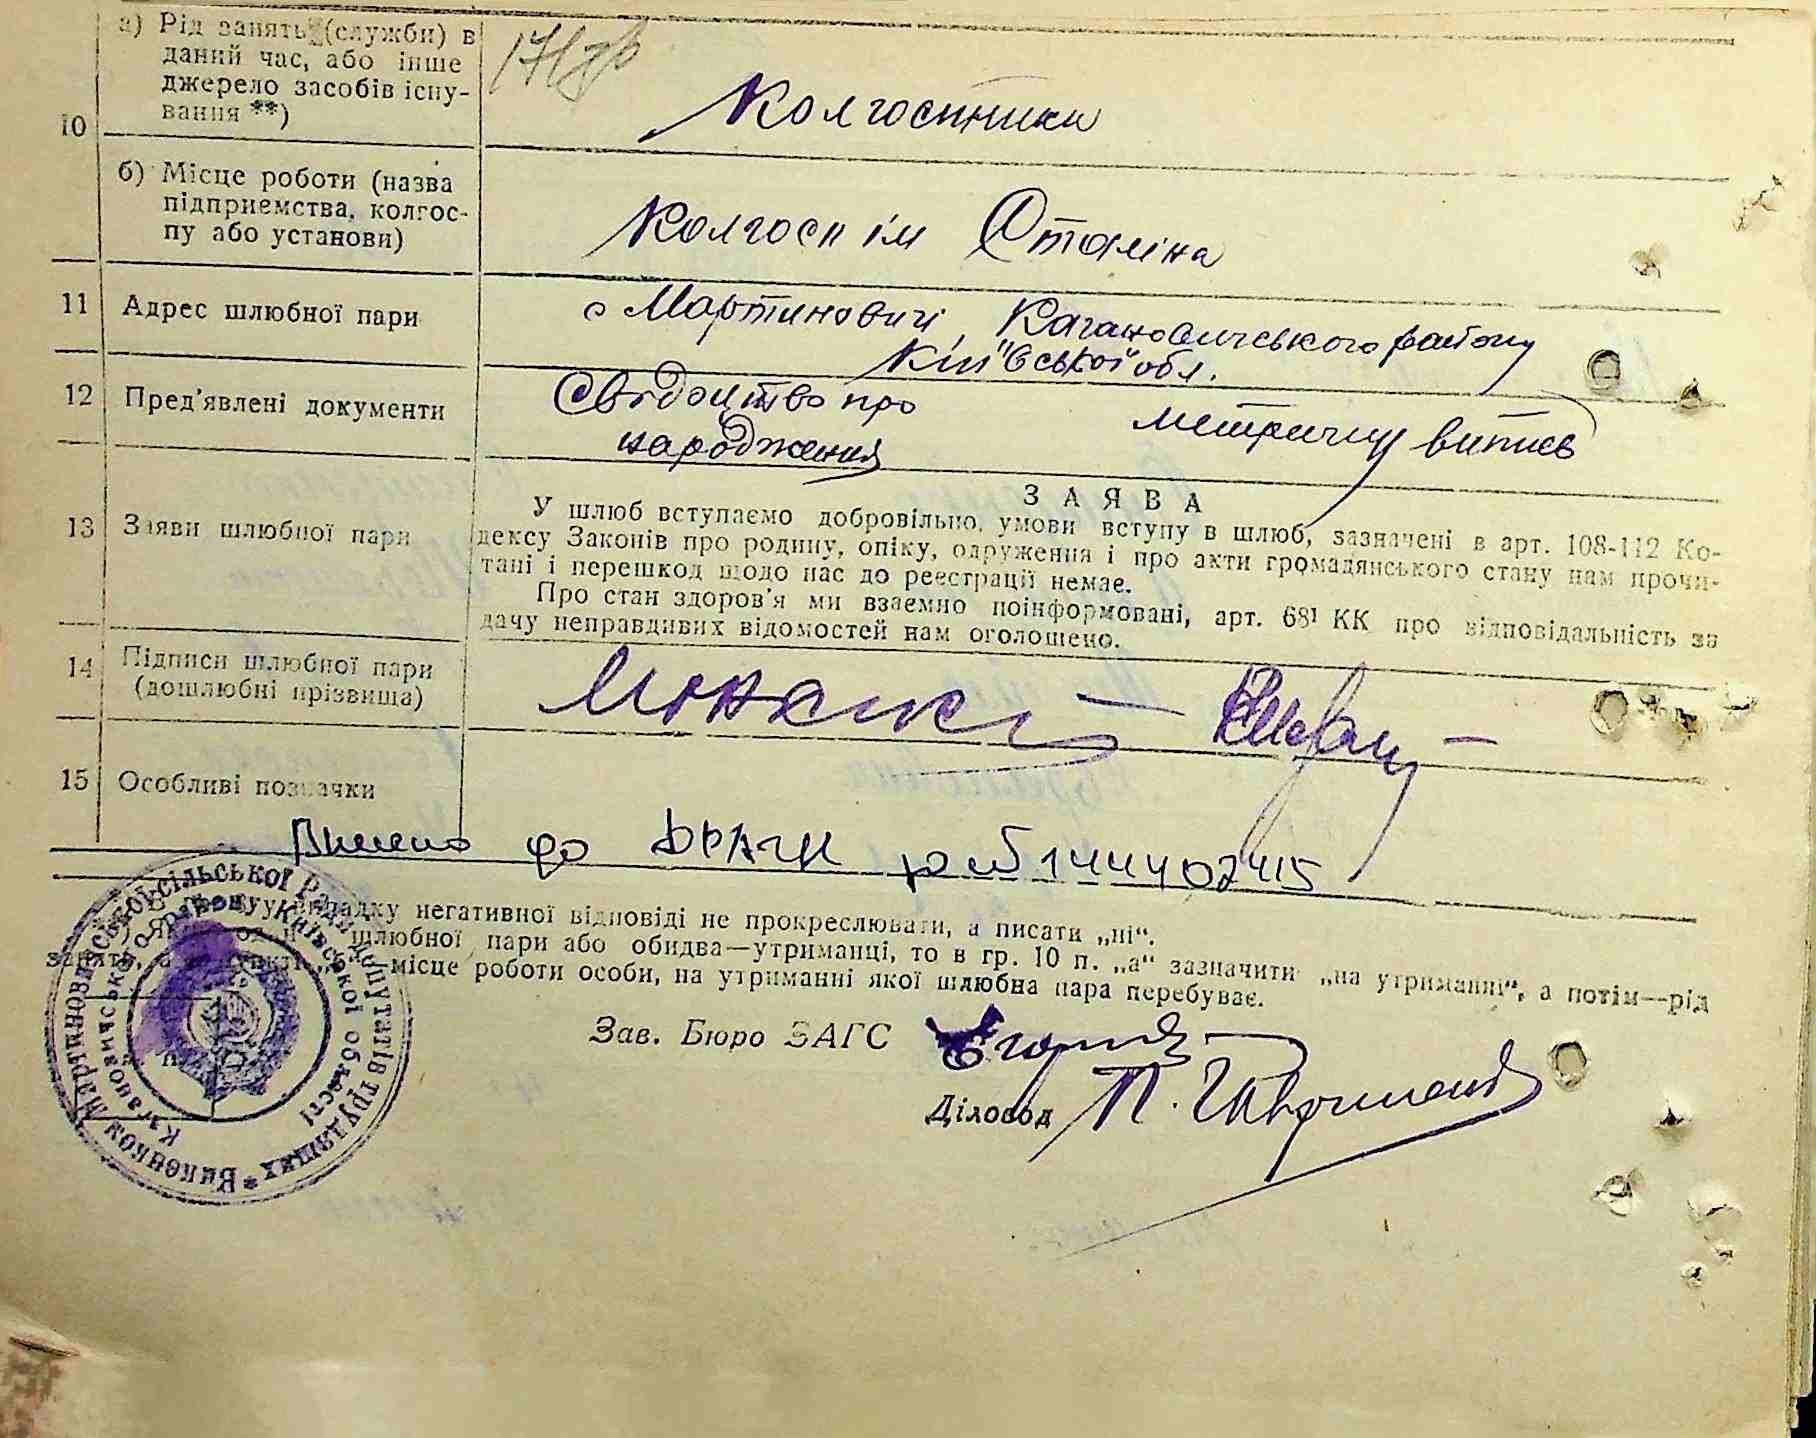 10
а) Рід занять (служби) в
даний час, або інше
джерело засобів існу-
вання **)
Колгоспники
б) Місце роботи (назва
підприємства, колгос-
пу або установи)
Колгосп ім Сталіна
11 Адрес шлюбної пари
с Мартиновичі Кагановичського району
Київської обл.
12 Пред'явлені документи
Свідоцтво про
народження
метричну випись
13 Заяви шлюбної пари
ЗАЯВА
У шлюб вступаємо добровільно, умови вступу в шлюб, зазначені в арт. 108-112 Ко-
дексу Законів про родину, опіку, одруження і про акти громадянського стану нам прочи-
тані і перешкод щодо нас до реєстрації немає.
Про стан здоров'я ми взаємно поінформовані, арт. 68¹ КК про відповідальність за
дачу неправдивих відомостей нам оголошено.
14 Підписи шлюбної пари
(дошлюбні прізвища)
15 Особливі позначки
Внесено до ДРАЦС
у випадку негативної відповіді не прокреслювати, а писати „ні“.
шлюбної пари або обидва—утриманці, то в гр. 10 п. „а“ зазначити „на утриманні“, а потім—рід
місце роботи особи, на утриманні якої шлюбна пара перебуває.
Зав. Бюро ЗАГС
Діловод
Виконком Мартиновицької сільської Ради депутатів трудящих *
Кагановичського району Київської області